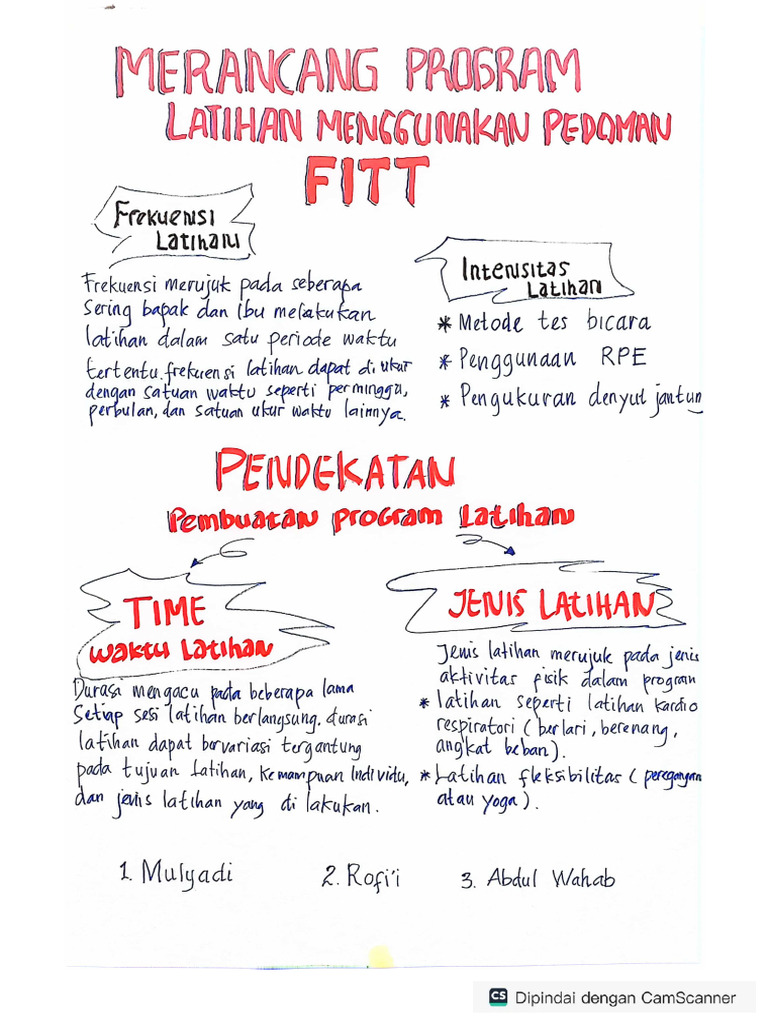 MERANCANG PROGRAM
LATIHAN MENGGUNAKAN PEDOMAN
FITT
Frekuensi
Latihan
Frekuensi merujuk pada seberapa
sering bapak dan ibu melakukan
latihan dalam satu periode waktu
tertentu. frekuensi latihan dapat di ukur
dengan satuan waktu seperti perminggu,
perbulan, dan satuan ukur waktu lainnya.
Intensitas
Latihan
* Metode tes bicara
* Penggunaan RPE
* Pengukuran denyut jantun
PENDEKATAN
Pembuatan program Latihan
TIME
Waktu Latihan
Durasi mengacu pada beberapa lama
Setiap sesi latihan berlangsung. durasi
latihan dapat bervariasi tergantung
pada tujuan Latihan, kemampuan Individu,
dan jenis latihan yang di lakukan.
JENIS LATIHAN
Jenis latihan merujuk pada jenis
aktivitas fisik dalam program
* latihan seperti latihan kardio
respiratori (berlari, berenang,
angkat beban).
* Latihan fleksibilitas (peregangan
atau yoga).
1. Mulyadi 2. Rofi'i 3. Abdul Wahab
CS Dipindai dengan CamScanner